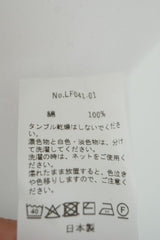 No.LF041-01
綿 100%
タンブル乾燥はしないでくださ
い。
濃色物と白色・淡色物は、分け
て洗濯して下さい。
洗濯の時は、ネットをご使用く
ださい。
濡れたまま放置すると、色泣き
や色移りしますので、ご注意下
さい。
40
日本製